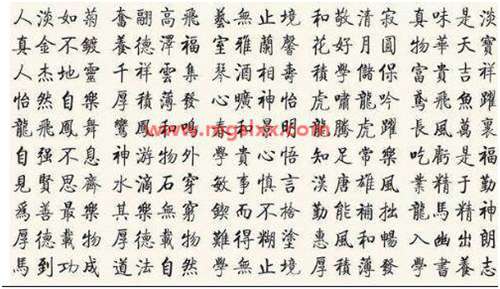 人淡如菊 奮翮高飛 藝無止境 和敬清寂 真味是淡
真金不鍍 養德澤福 室雅蘭馨 花好月圓 物華天寶
人杰地靈 千祥雲集 琴酒相壽 積學儲保 富貴吉祥
怡然自樂 厚積薄發 心曠神怡 虎嘯龍吟 鳶飛魚躍
龍飛鳳舞 鸞鳳和鳴 春和景明 龍騰虎躍 長風萬裏
自強不息 神游物外 學貴心悟 知足常樂 吃虧是福
見賢思齊 水滴石穿 敏事慎言 漢唐雄風 業精于勤
爲善最樂 其樂無窮 鍥而不捨 勤能補拙 龍馬精神
厚德載物 難得糊塗 惠風和暢 入幽出朗
馬到功成 道法自然 學無止境 厚積薄發 學書養志